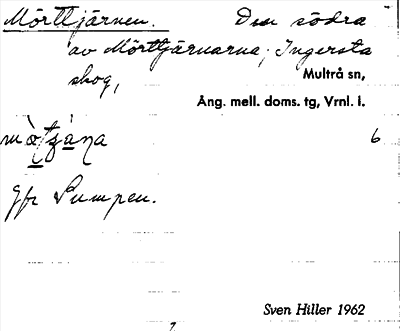 Mörttjärnen. Den södra
av Mörttjärnarna, Ingersta
skog,
Multrå sn,
Ång. mell. doms. tg, Vrnl. l.
6
Jfr Sumpen.
Sven Hiller 1962